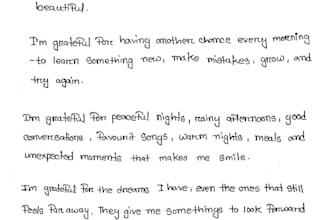 beautiful.
I'm grateful for having another chance every morning
- to learn something new, make mistakes, grow, and
try again.
I'm grateful for peaceful nights, rainy afternoons, good
conversations, favourit songs, warm nights, meals and
unexpected moments that makes me smile.
I'm grateful for the dreams I have, even the ones that still
feels far away. They give me somethings to look forward